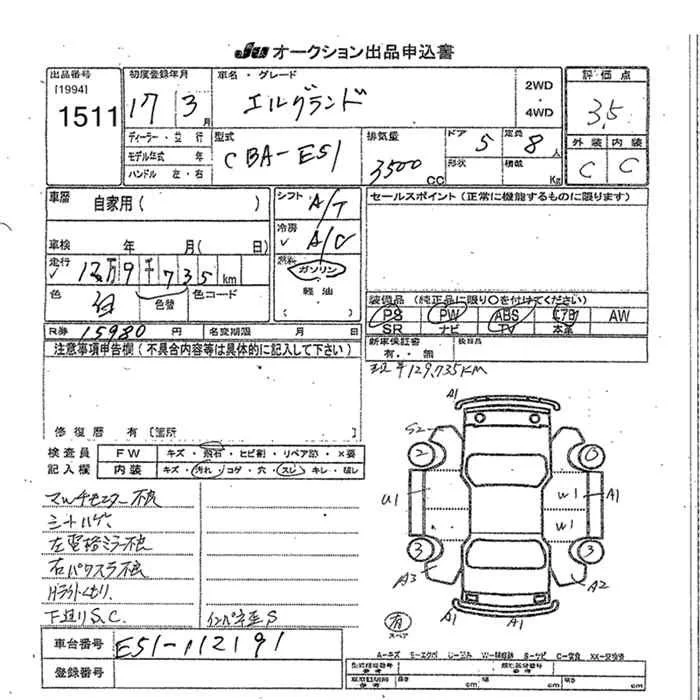 JU オークション出品申込書
出品番号 [1994] 1511
初度登録年月 17 3月
車名・グレード エルグランド
2WD・4WD
評価点 3.5
外装 C 内装 C
ディーラー・並行
モデル年式 年
ハンドル 左・右
型式 CBA-E51
排気量 3500 CC
ドア 5 定員 8人
形状 積載 Kg
車歴 自家用( )
車検 年 月( 日)
走行 ✓ 12万9千735km
色 白 色替 色コード
シフト A/T
冷房 ✓ A/C
燃料 ガソリン
軽油
セールスポイント(正常に機能するものに限ります)
装備品(純正品に限り○を付けてください)
PS PW ABS エアB AW
SR ナビ TV 本革
R券 15980 円 名変期限 月 日
新車保証書 有・無
注意事項申告欄(不具合内容等は具体的に記入して下さい)
修復歴 有〔箇所
129,735KM
検査員 記入欄
FW キズ・飛石・ヒビ割・リペア跡・X要
内装 キズ・汚れ・コゲ・穴・スレ・キレ・破レ
マルチモニター不良
シートハゲ
左電格ミラー不良
右パワスラ不良
Hライトくもり
下廻りS.C.
インパネ歪S
A1
S2
2
U1
W1
A1
W1
3
3
A3
A2
A1
A1
有
スペア
車台番号 E51-112191
登録番号
A-キズ
cm cm cm